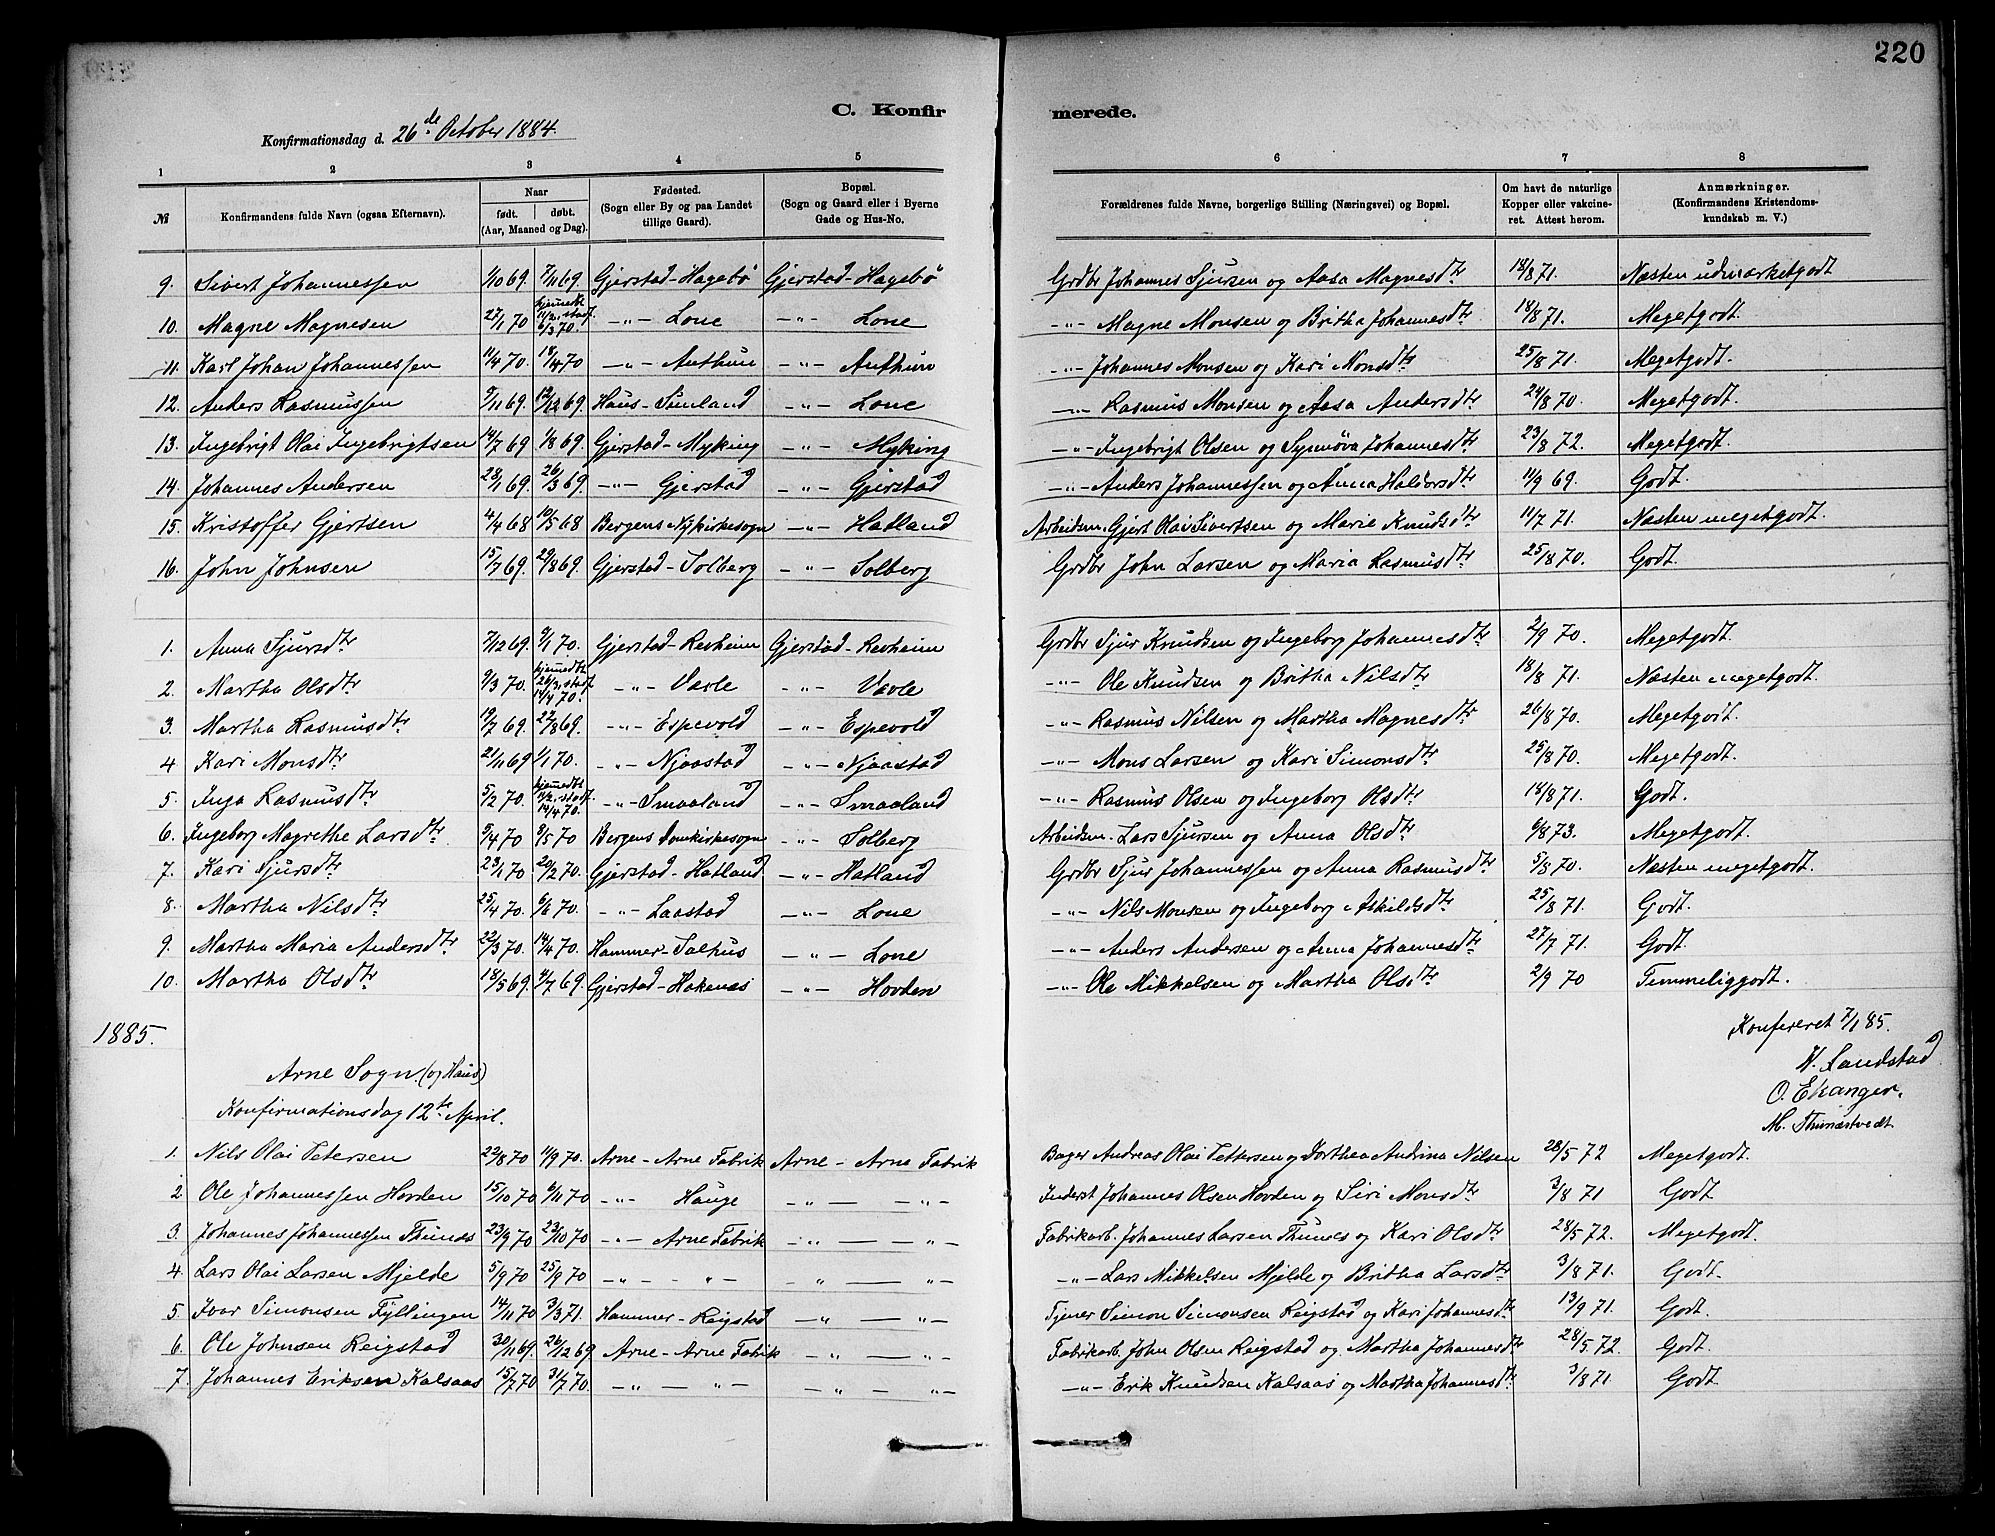 220
C. Konfirmerede.
Konfirmationsdag d. 26de October 1884.
1 2 3 4 5 6 7 8
№ Konfirmandens fulde Navn (ogsaa Efternavn). Naar født. døbt. (Aar, Maaned og Dag). Fødested. (Sogn eller By og paa Landet tillige Gaard). Bopæl. (Sogn og Gaard eller i Byerne Gade og Hus-No. Forældrenes fulde Navne, borgerlige Stilling (Næringsvei) og Bopæl. Om havt de naturlige Kopper eller vakcineret. Attest herom. Anmærkninger. (Konfirmandens Kristendomskundskab m. V.)
9. Sivert Johannessen 1/10 69. 7/11 69. Gjerstad-Hagebö Gjerstad-Hagebö Grdbr Johannes Sjursen og Aasa Magnesdtr 18/8 71. Næsten udmærketgodt
10. Magne Magnesen 27/1 70 hjemmedbt 11/2, stadf. 6/3 70. -"- Lone -"- Lone -"- Magne Monsen og Britha Johannesdtr 18/8 71. Megetgodt.
11. Karl Johan Johannessen 11/4 70. 18/4 70 -"- Authun -"- Authun -"- Johannes Monsen og Kari Monsdtr 25/8 71. Megetgodt.
12. Anders Rasmussen 5/11 69. 12/12 69. Haus- -"- Lone -"- Rasmus Monsen og Aasa Andersdtr 24/8 70. Megetgodt.
13. Ingebrigt Olai Ingebrigtsen 14/7 69 1/8 69. Gjerstad-Myking -"- Myking -"- Ingebrigt Olsen og Synnöva Johannesdtr 23/8 72. Megetgodt.
14. Johannes Andersen 28/1 69. 26/3 69. -"- Gjerstad -"- Gjerstad -"- Anders Johannessen og Anna Haldorsdtr 11/9 69. Godt.
15. Kristoffer Gjertsen 4/4 68 10/5 68 Bergens Nykirkesogn -"- Hatland Arbeidsm. Gjert Olai Sivertsen og Marie Knudsdtr 11/7 71. Næsten megetgodt.
16. John Johnsen 15/7 69. 29/8 69. Gjerstad-Solberg -"- Solberg Grdbr John Larsen og Maria Rasmusdtr 25/8 70. Godt.
1. Anna Sjursdtr 7/12 69. 9/1 70. Gjerstad-Revheim Gjerstad-Revheim Grdbr Sjur Knudsen og Ingeborg Johannesdtr 2/9 70. Megetgodt.
2. Martha Olsdtr 9/3 70. hjemmedbt 26/3, stadf. 14/4 70. -"- Vavle -"- Vavle -"- Ole Knudsen og Britha Nilsdtr 18/8 71. Næsten megetgodt.
3. Martha Rasmusdtr 19/7 69. 22/8 69. -"- Espevold -"- Espevold -"- Rasmus Nilsen og Martha Magnesdtr 26/8 70. Megetgodt.
4 Kari Monsdtr 21/11 69 1/1 70. -"- Njaastad -"- Njaastad -"- Mons Larsen og Kari Simonsdtr 25/8 70. Megetgodt.
5. Inga Rasmusdtr 5/2 70. hjemmedbt 11/2, stadf. 14/4 70. -"- Smaaland -"- Smaaland -"- Rasmus Olsen og Ingeborg Olsdtr 18/8 71. Godt.
6. Ingeborg Magrethe Larsdtr 5/4 70 8/5 70 Bergens Domkirkesogn -"- Solberg Arbeidsm. Lars Sjursen og Anna Olsdtr 6/8 73. Megetgodt.
7. Kari Sjursdtr 23/1 70 20/2 70. Gjerstad-Hatland -"- Hatland Grdbr Sjur Johannessen og Anna Rasmusdtr 5/8 70. Næsten megetgodt.
8. Martha Nilsdtr 25/4 70. 6/6 70. -"- Laastad -"- Lone -"- Nils Monsen og Ingeborg Askildsdtr 25/8 71. Godt.
9. Martha Maria Andersdtr 22/3 70. 14/4 70. Hammer-Salhus -"- Lone -"- Anders Andersen og Anna Johannesdtr 27/7 71. Godt.
10. Martha Olsdtr 18/5 69. 4/7 69. Gjerstad-Hakenæs -"- Hovden -"- Ole Mikkelsen og Martha Olsdtr 2/9 70 Temmeliggodt.
1885. Konfereret 7/1 85.
Arne Sogn. (og Haus) H. Sandstad
O. Ekanger.
Konfirmationsdag 12te April. M. Thunæstvedt
1. Nils Olai Petersen 22/8 70 11/9 70. Arne-Arne Fabrik Arne-Arne Fabrik Bager Andreas Olai Pettersen og Dorthea Andrina Nilsen 28/5 72 Megetgodt.
2 Ole Johannessen Hovden 15/10 70 6/11 70 -"- Hauge -"- — -"- Inderst Johannes Olsen Hovden og Siri Monsdtr 3/8 71 Godt
3. Johannes Johannessen Thunes 23/9 70 23/10 70 -"- Arne Fabrik -"- — -"- Fabrikarb. Johannes Larsen Thunes og Kari Olsdtr 28/5 72. Megetgodt.
4. Lars Olai Larsen Mjelde 5/9 70 25/9 70 -"- -"- "- — "- -"- Lars Mikkelsen Mjelde og Britha Larsdtr 3/8 71. Godt.
5. Ivar Simonsen Fyllingen 14/11 70 3/3 71. Hammer-Reigstad -"- — "- Tjener Simon Simonsen Reigstad og Kari Johannesdtr 13/9 71. Godt.
6. Ole Johnsen Reigstad 30/11 69. 26/12 69 Arne-Arne Fabrik -"- — "- Fabrikarb. John Olsen Reigstad og Martha Johannesdtr 28/5 72. Godt.
7. Johannes Eriksen Kalsaas 15/7 70 31/7 70. -"- — "- -"- "- -"- Erik Knudsen Kalsaas og Martha Johannesdtr 3/8 71 Godt.